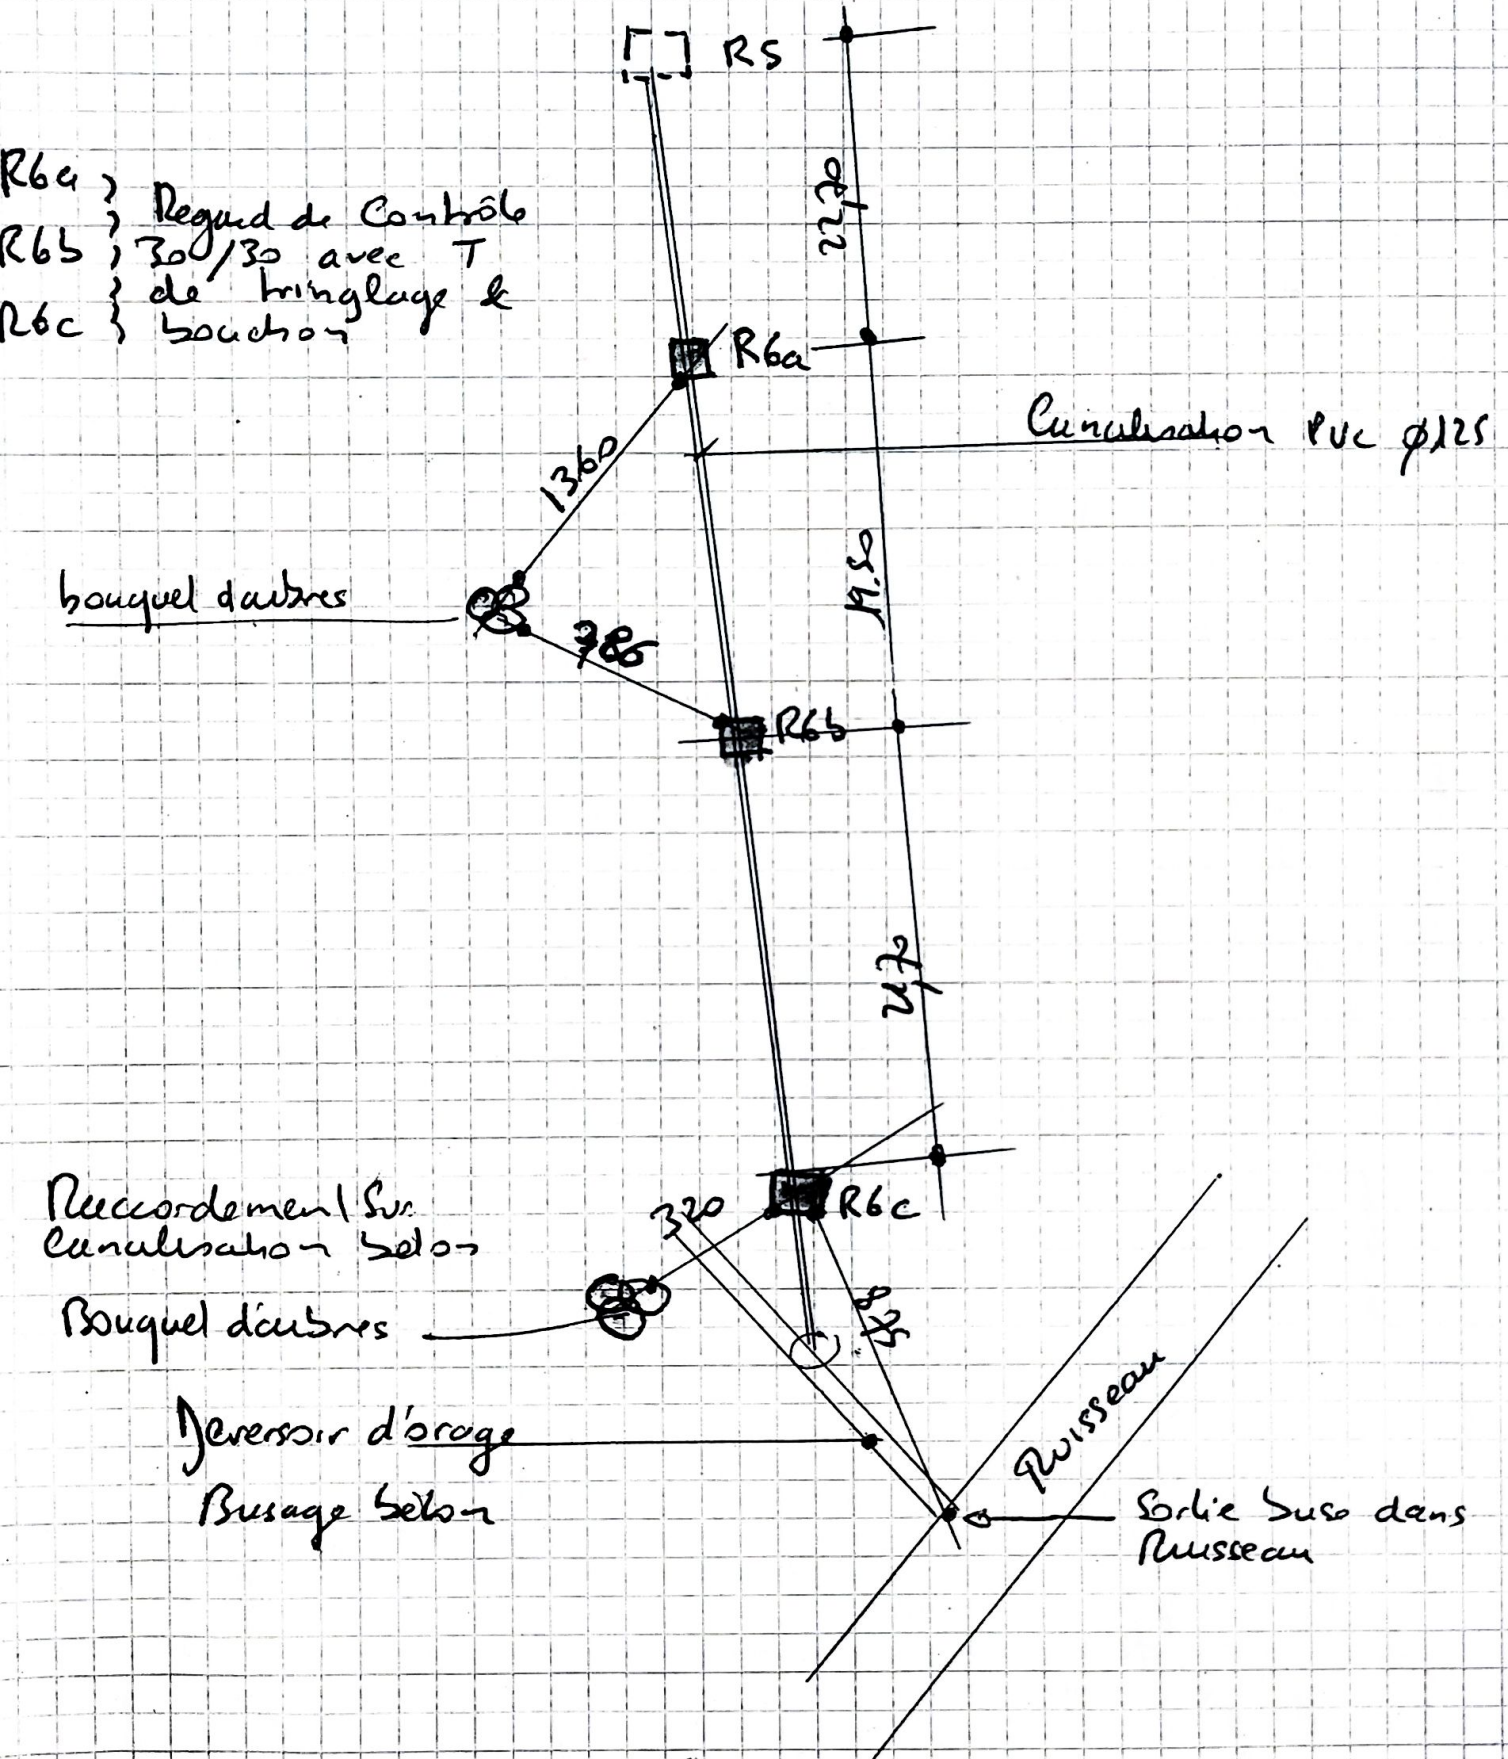 R5
22,70
R6a } Regard de Contrôle
R6b } 30/30 avec T
} de tringlage &
R6c } bouchon
R6a
Canalisation PVC ø125
1360
19.50
bouquet d'arbres
786
R6b
21,70
Raccordement Sur
Canalisation béton
320
R6c
Bouquet d'arbres
Deversoir d'orage
Busage béton
Ruisseau
Sortie buse dans
Ruisseau